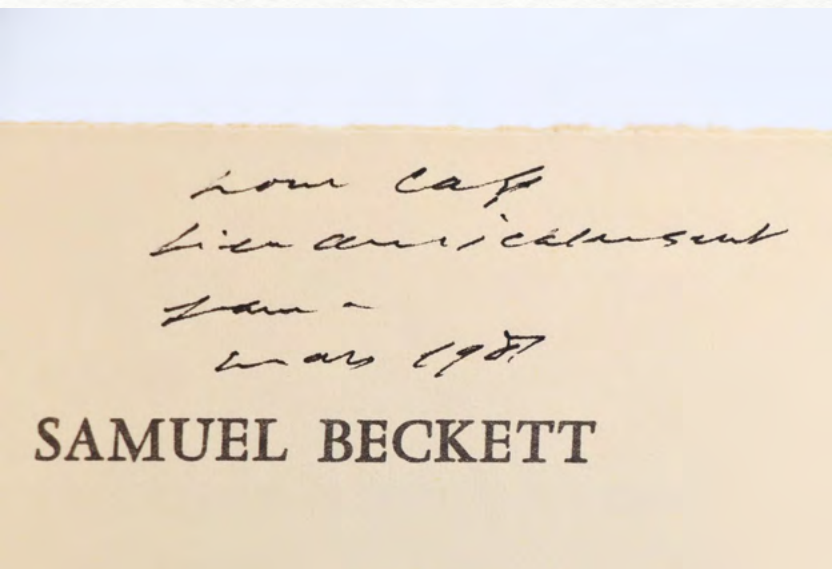 pour
bien amicalement
Sam -
mars 198
SAMUEL BECKETT